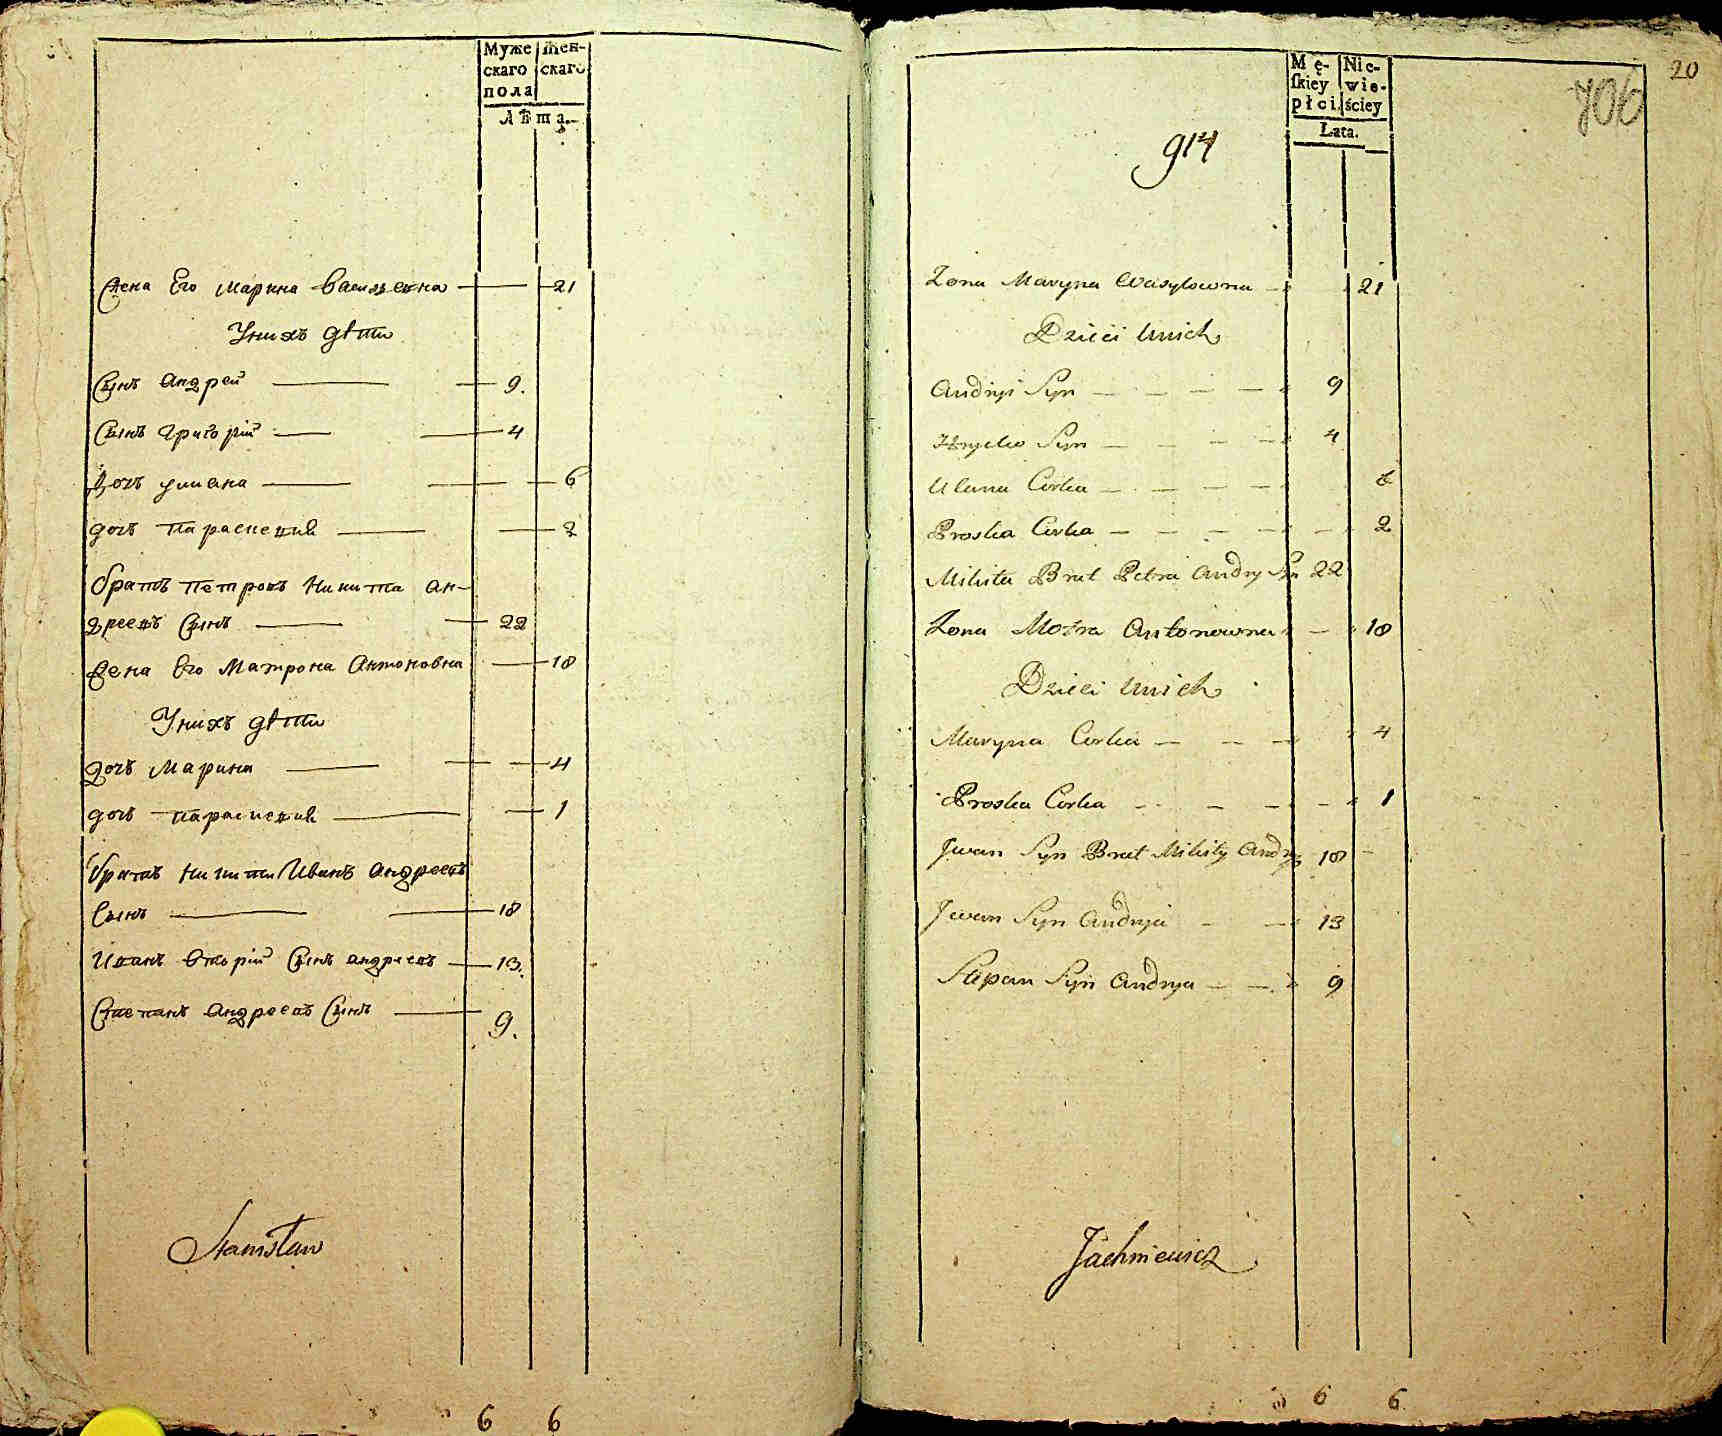 Муже
скаго
пола
Жен-
скаго
Лѣта.
Жена Его Марина Васильевна 21
У нихъ дѣти
Сынъ Андрей 9.
Сынъ Григорій 4
Дочь Улиана 6
дочь Параскевия 2
братъ Петровъ Никита Ан-
дреевъ Сынъ 22
Жена Его Матрона Антоновна 18
У нихъ дѣти
дочь Марина 4
дочь Параскевия 1
братъ Никиты Иванъ Андреевъ
Сынъ 18
Иванъ вторій Сынъ андреевъ 13.
Степанъ Андреевъ Сынъ 9.
Stanisław
6 6
Mę-
skiey
płci.
Nie-
wie-
ściey
Lata.
20
706
914
Zona Maryna Wasylowna 21
Dzieci Unich
Andryi Syn 9
Hryćko Syn 4
Ulana Corka 6
Proska Corka 2
Mikita Brat Petra Andry Syn 22
Zona Motra Antonowna 18
Dzieci Unich
Maryna Corka 4
Proska Corka 1
Jwan Syn Brat Mikity Andry 18
Jwan Syn Andryia 13
Stepan Syn Andrya 9
Jachniewicz
6 6